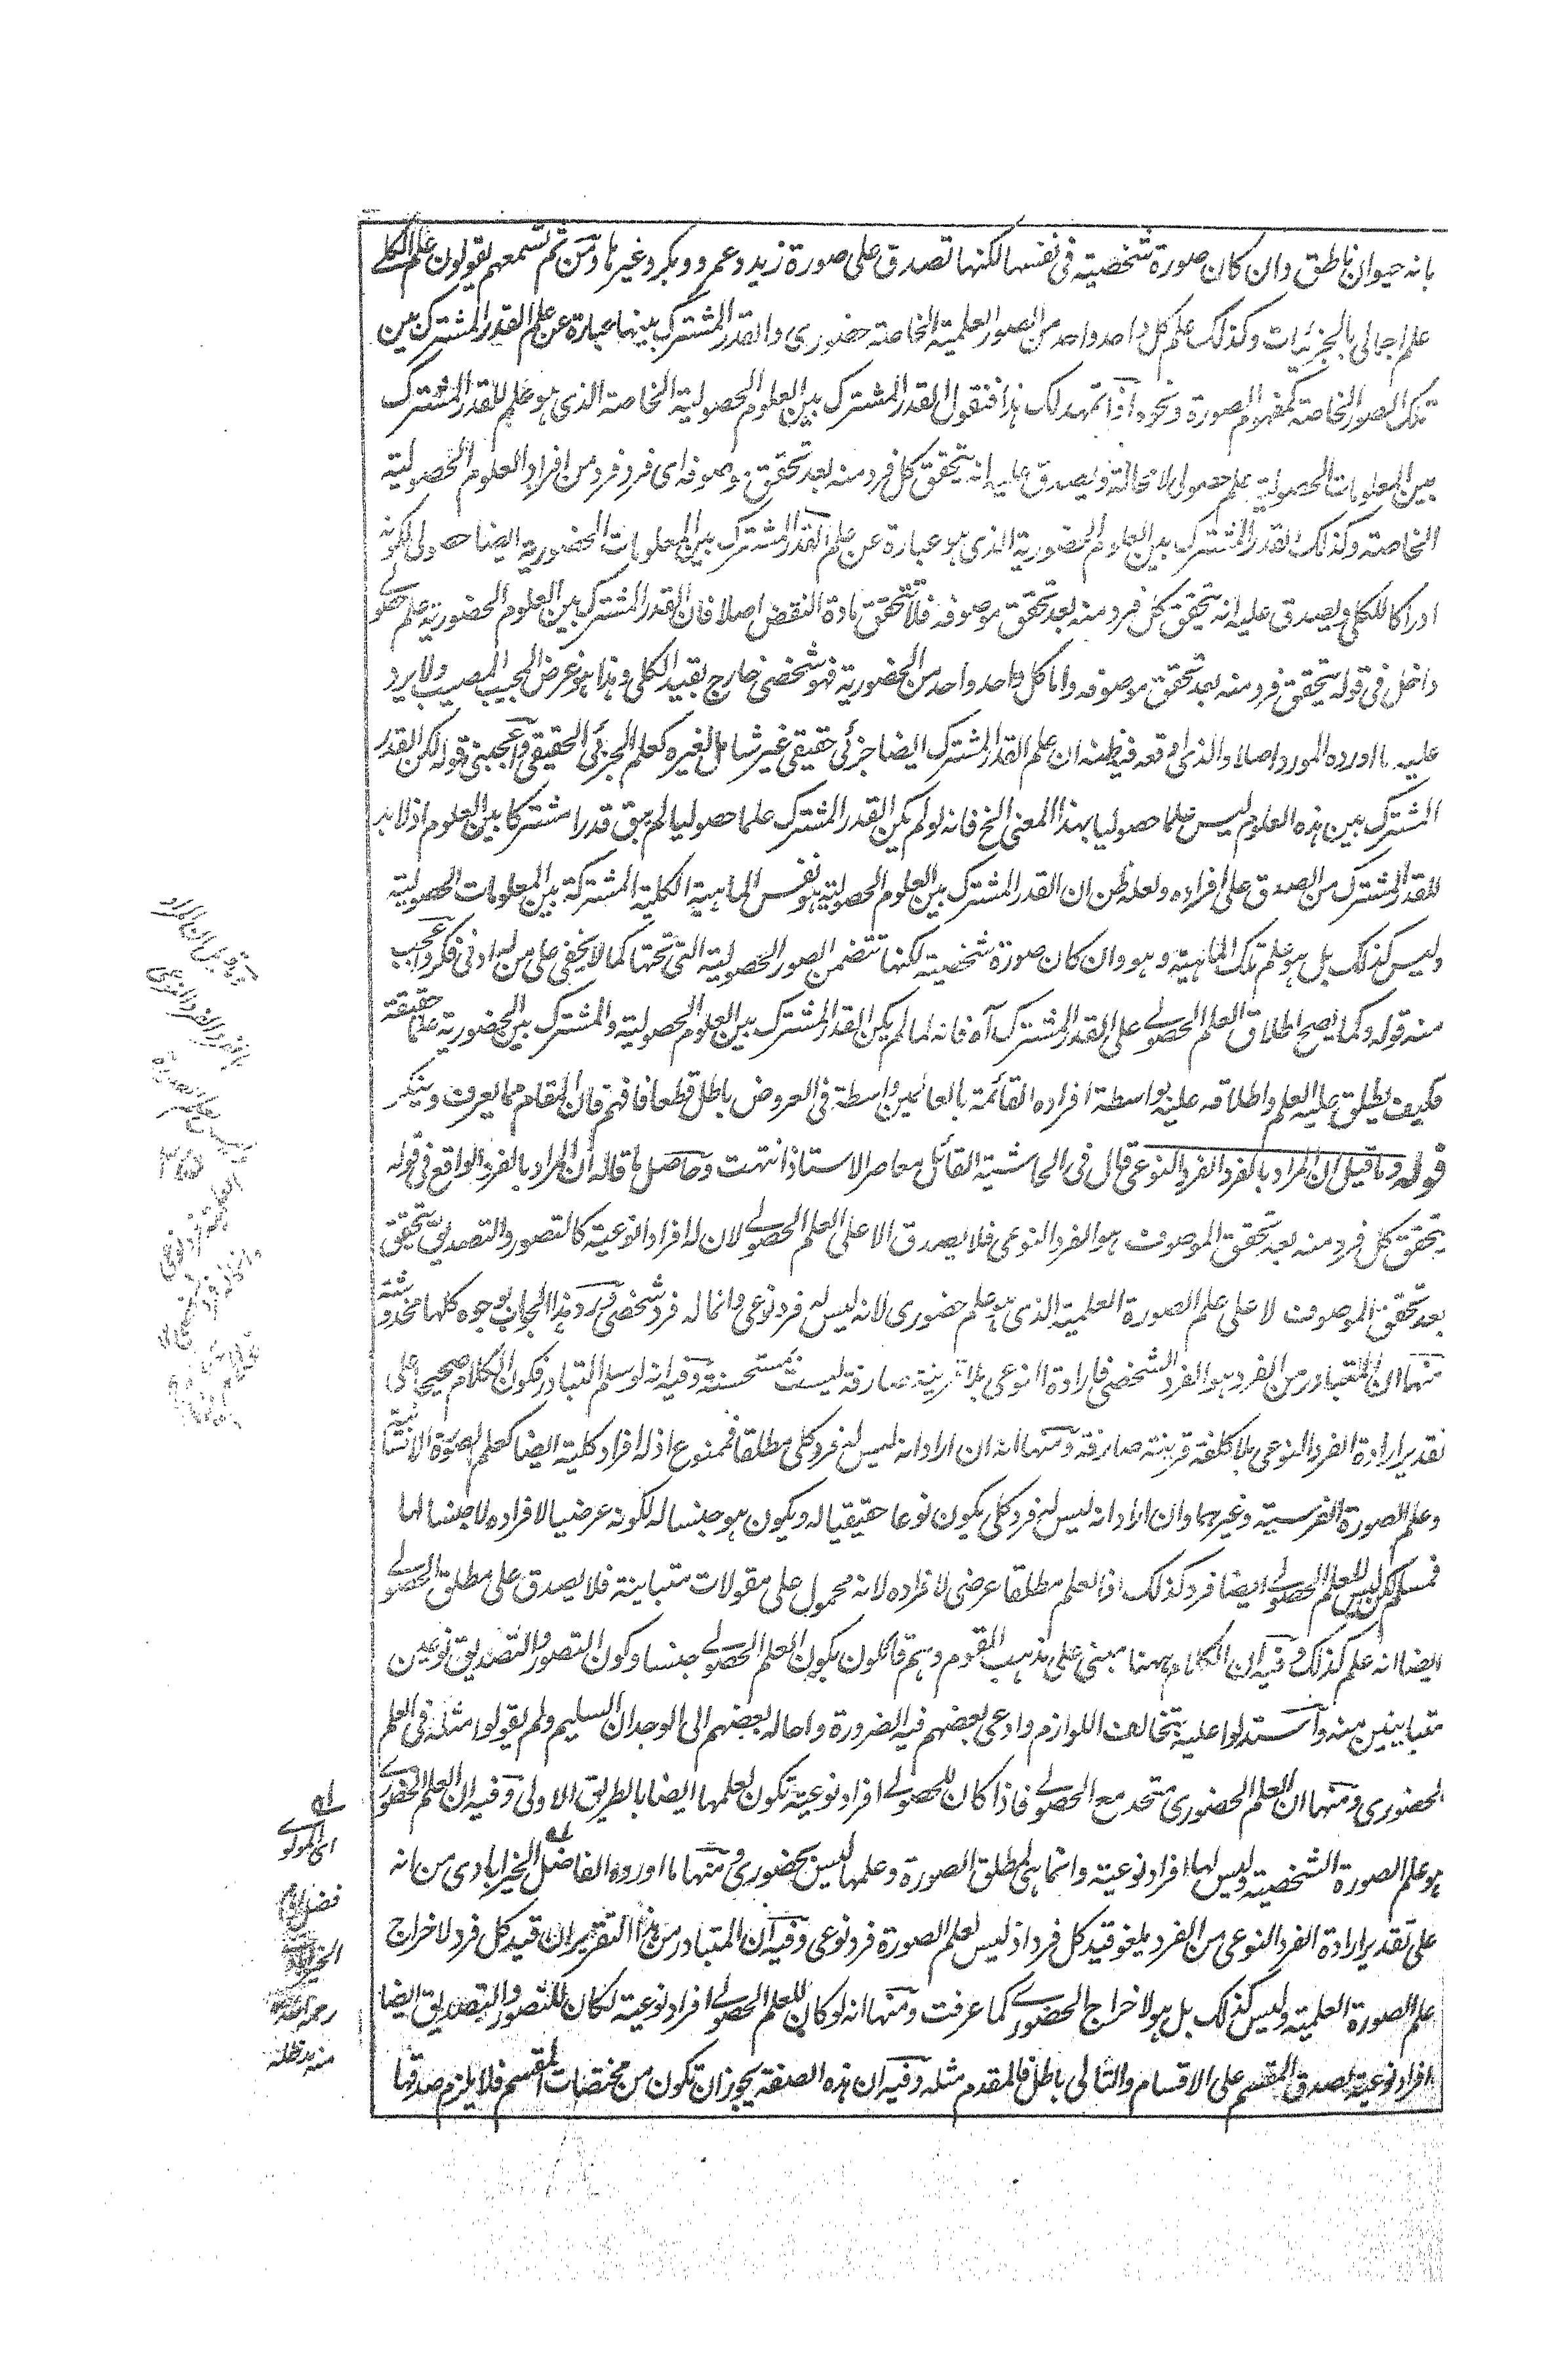 بانه حيوان ناطق وان كان صورة شخصية فى نفسها لكنها تصدق على صورة زيد وعمرو وبكر وغيرها ومن ثم تسمعهم يقولون علم الكلے
علم اجمالى بالجزئيات وكذلك علم كل واحد واحد من الصور العلمية الخاصة حضورى والقدر المشترك بينها عبارة عن علم القدر المشترك بين
تلك الصور الخاصة كمفهوم الصورة ونحوه اذا تمهد لك هذا فنقول القدر المشترك بين العلوم الحصولية الخاصة الذى هو علم للقدر المشترك
بين المعلومات الحصولية علم حصولى لا محالة ويصدق عليه انه يتحقق كل فرد منه بعد تحقق موصوفه اى فرد فرد من افراد العلوم الحصولية
الخاصة وكذلك القدر المشترك بين العلوم الحضورية الذى هو عبارة عن علم القدر المشترك بين المعلومات الحضورية ايضا حصولى لكونه
ادراكا للكلى ويصدق عليه انه يتحقق كل فرد منه بعد تحقق موصوفه فلا تتحقق مادة النقض اصلا فان القدر المشترك بين العلوم الحضورية علم حصولے
داخل فى قوله يتحقق فرد منه بعد تحقق موصوفه واما كل واحد واحد من الحضورية فهو شخصى خارج بقيد الكلى وهذا هو غرض المجيب المصيب ولا يرد
عليه ما اورده المورد اصلا والذى اوقعه فيظنه ان علم القدر المشترك ايضا جزئى حقيقى غير شامل لغيره كعلم الجزئى الحقيقى واعجبنى قوله لكن القدر
المشترك بين هذه العلوم ليس علما حصوليا بهذا المعنى الخ فانه لو لم يكن القدر المشترك علما حصوليا لم يبق قدرا مشتركا بين العلوم اذ لا بد
للقدر المشترك من الصدق على افراده ولعله ظن ان القدر المشترك بين العلوم الحصولية هو نفس الماهية الكلية المشتركة بين المعلومات الحصولية
وليس كذلك بل هو علم تلك الماهية وهو وان كان صورة شخصية لكنها تتضمن الصور الحصولية التى تحتها كما لا يخفى على من له ادنى فكر واعجب
منه قوله وكما يصح اطلاق العلم الحصولے على القدر المشترك آه فانه لما لم يكن القدر المشترك بين العلوم الحصولية والمشترك بين الحضورية علما حقيقة
فكيف يطلق عليه العلم واطلاقه عليه بواسطة افراده القائمة بالعالمين واسطة فى العروض باطل قطعا فافهم فان المقام مما يعرف وينكر
قوله وما قيل ان المراد بالفرد الفرد النوعى قال فى الحاشية القائل معاصر الاستاذ انتهت وحاصل ما قاله ان المراد بالفرد الواقع فى قوله
يتحقق كل فرد منه بعد تحقق الموصوف هو الفرد النوعى فلا يصدق الا على العلم الحصولے لان له افرادا نوعية كالتصور والتصديق يتحقق
بعد تحقق الموصوف لا على علم الصورة العلمية الذى هو علم حضورى لانه ليس له فرد نوعى وانما له فرد شخصى ويرد هذا الجواب بوجوه كلها مخدوشة
منها ان المتبادر من الفرد هو الفرد الشخصى فارادة النوعى بلا قرينة صارفة ليست بمستحسنة وفيه انه لو سلم التبادر فكون الكلام صحيحا على
تقدير ارادة الفرد النوعى بلا كلفة قرينة صارفة ومنها انه ان اراد انه ليس له فرد كلى مطلقا فممنوع اذ له افراد كلية ايضا كعلم الصورة الانسانية
وعلم الصورة الفرسية وغيرهما وان اراد انه ليس له فرد كلى يكون نوعا حقيقيا له ويكون هو جنسا له لكونه عرضيا لافراده لا جنسا لها
فمسلم لكن ليس للعلم الحصولے ايضا فرد كذلك اذ العلم مطلقا عرضى لافراده لانه محمول على مقولات متباينة فلا يصدق على مطلق الحصولے
ايضا انه علم كذلك وفيه ان الكلام ههنا مبنى على مذهب القوم وهم قائلون بكون العلم الحصولے جنسا وكون التصور والتصديق نوعين
متباينين منه واستدلوا عليه بتخالف اللوازم وادعى بعضهم فيه الضرورة واحاله بعضهم الى الوجدان السليم ولم يقولوا مثله فى العلم
الحضورى ومنها ان العلم الحضورى متحد مع الحصولے فاذا كان للحصولے افراد نوعية تكون لعلمها ايضا بالطريق الاولى وفيه ان العلم الحضورے
هو علم الصورة الشخصية وليس لها افراد نوعية وانما هى لمطلق الصورة وعلمها ليس بحضورى ومنها ما اورده الفاضل الخيرابادى من انه
على تقدير ارادة الفرد النوعى من الفرد يلغو قيد كل فرد اذ ليس لعلم الصورة فرد نوعى وفيه ان المتبادر من هذا التقرير ان قيد كل فرد لاخراج
علم الصورة العلمية وليس كذلك بل هو لاخراج الحضورے كما عرفت ومنها انه لو كان للعلم الحصولے افراد نوعية لكان للتصور والتصديق ايضا
افراد نوعية لصدق المقسم على الاقسام والتالى باطل فالمقدم مثله وفيه ان هذه الصفة يجوز ان تكون من مختصات المقسم فلا يلزم صدقها
اى المولوے
فضل امام
رحمه الله
منه مد ظله